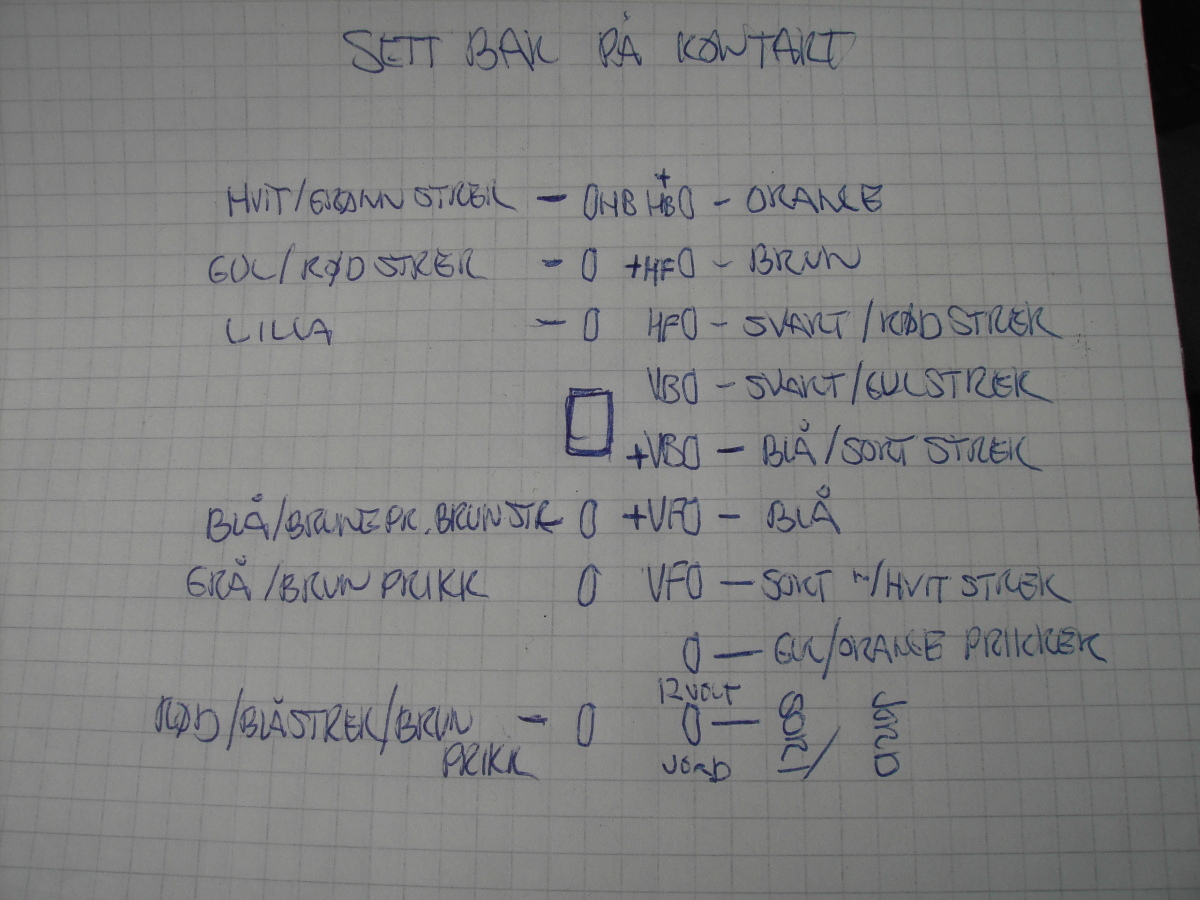 SETT BAK PÅ KONTAKT
HVIT/GRØNN STREK - 0HB +HB0 - ORANGE
GUL/RØD STREK - 0 +HF0 - BRUN
LILLA - 0 HF0 - SVART/RØD STREK
VB0 - SVART/GUL STREK
+VB0 - BLÅ/SORT STREK
BLÅ/BRUNE PR. BRUN STR 0 +VF0 - BLÅ
GRÅ/BRUN PRIKK 0 VF0 - SORT m/HVIT STREK
0 - GUL/ORANGE PRIKKER
12 VOLT
RØD/BLÅ STREK/BRUN - 0 0 -
PRIKK JORD
JORD